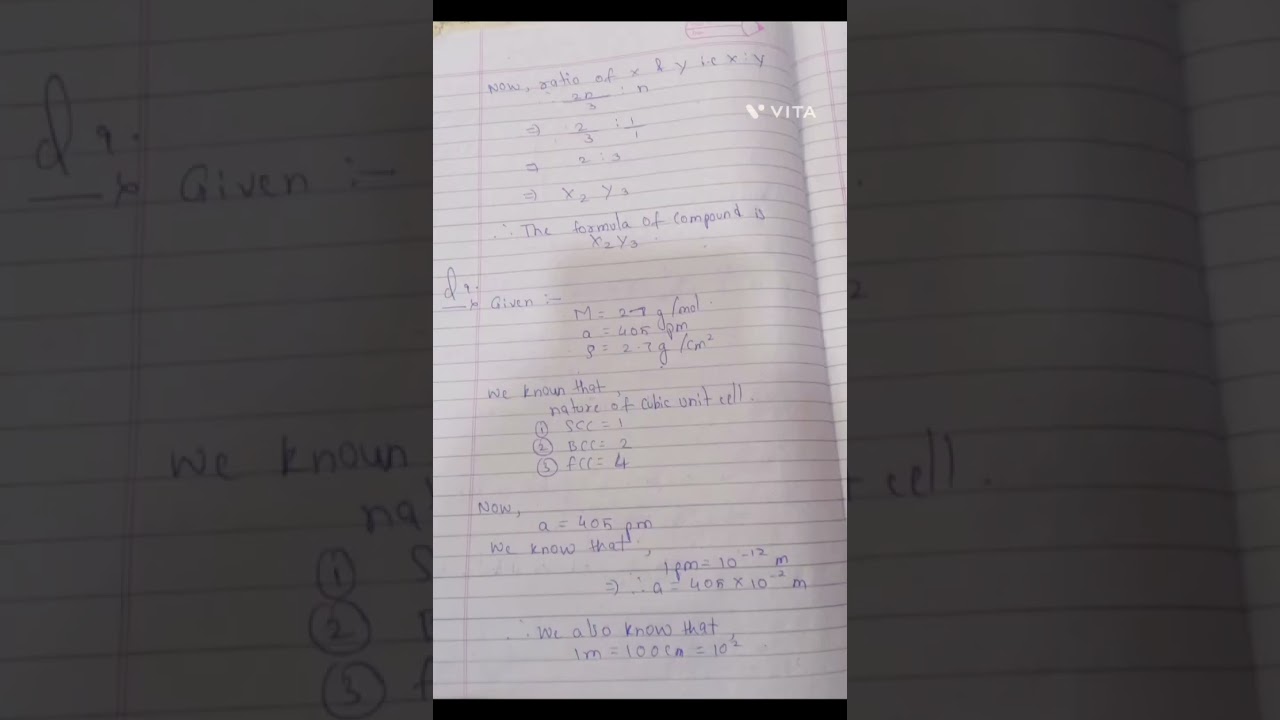 Now, ratio of x & y i.e x : y
∴ 2n/3 : n
⇒ 2/3 : 1/1
⇒ 2 : 3
⇒ X₂ Y₃
∴ The formula of compound is
X₂Y₃.
VITA
Given :-
M = 27 g/mol.
a = 405 pm
ρ = 2.7g /cm²
We known that,
nature of cubic unit cell.
① SCC = 1
② BCC = 2
③ FCC = 4
Now,
a = 405 pm
We know that,
1pm = 10⁻¹² m
⇒ ∴ a = 405 × 10⁻² m
∴ We also know that,
1m = 100cm = 10²
Given :-
We known
cell.
①
②
③